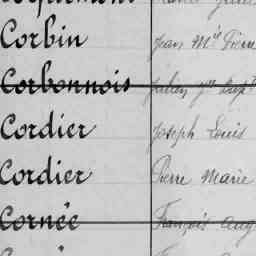 Corbin Jean M.ie Pierre
Corbonnois Julien
Cordier Joseph Louis
Cordier Pierre Marie
Cornée François Aug